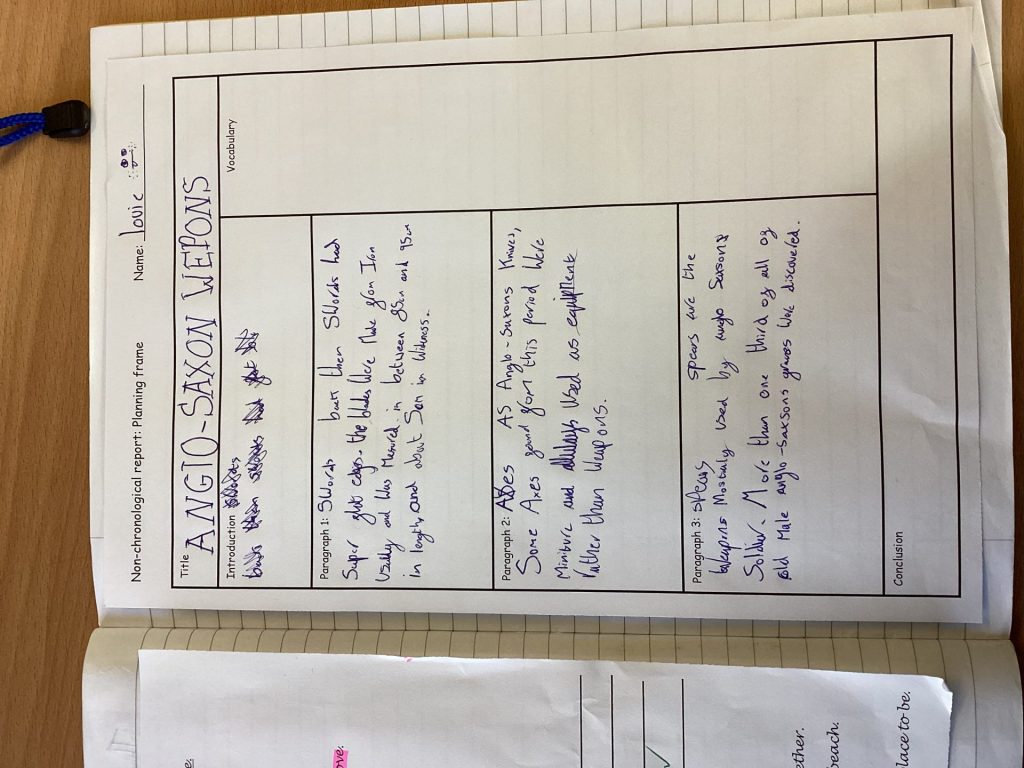 Non-chronological report: Planning frame Name: Louie
Title
ANGlO-SAXON WEPONS
Introduction
Vocabulary
Paragraph 1: SWords back then SWords had
Super flat edgs. the blades Were Made from Iron
Usually and Was Mesured in between 85cm and 95cm
in length and about 5cm in Widness.
Paragraph 2: Axes AS Anglo-Saxons Knives,
Some Axes found from this period Were
Miniture and always Used as equipment
rather than Weapons.
Paragraph 3: spears spears are the
Weapons Mostialy used by anglo Saxons
Soldier. More than one third of all of
old Male anglo-saxons graves Were discovered.
Conclusion
ove.
ether.
each.
lace to be.